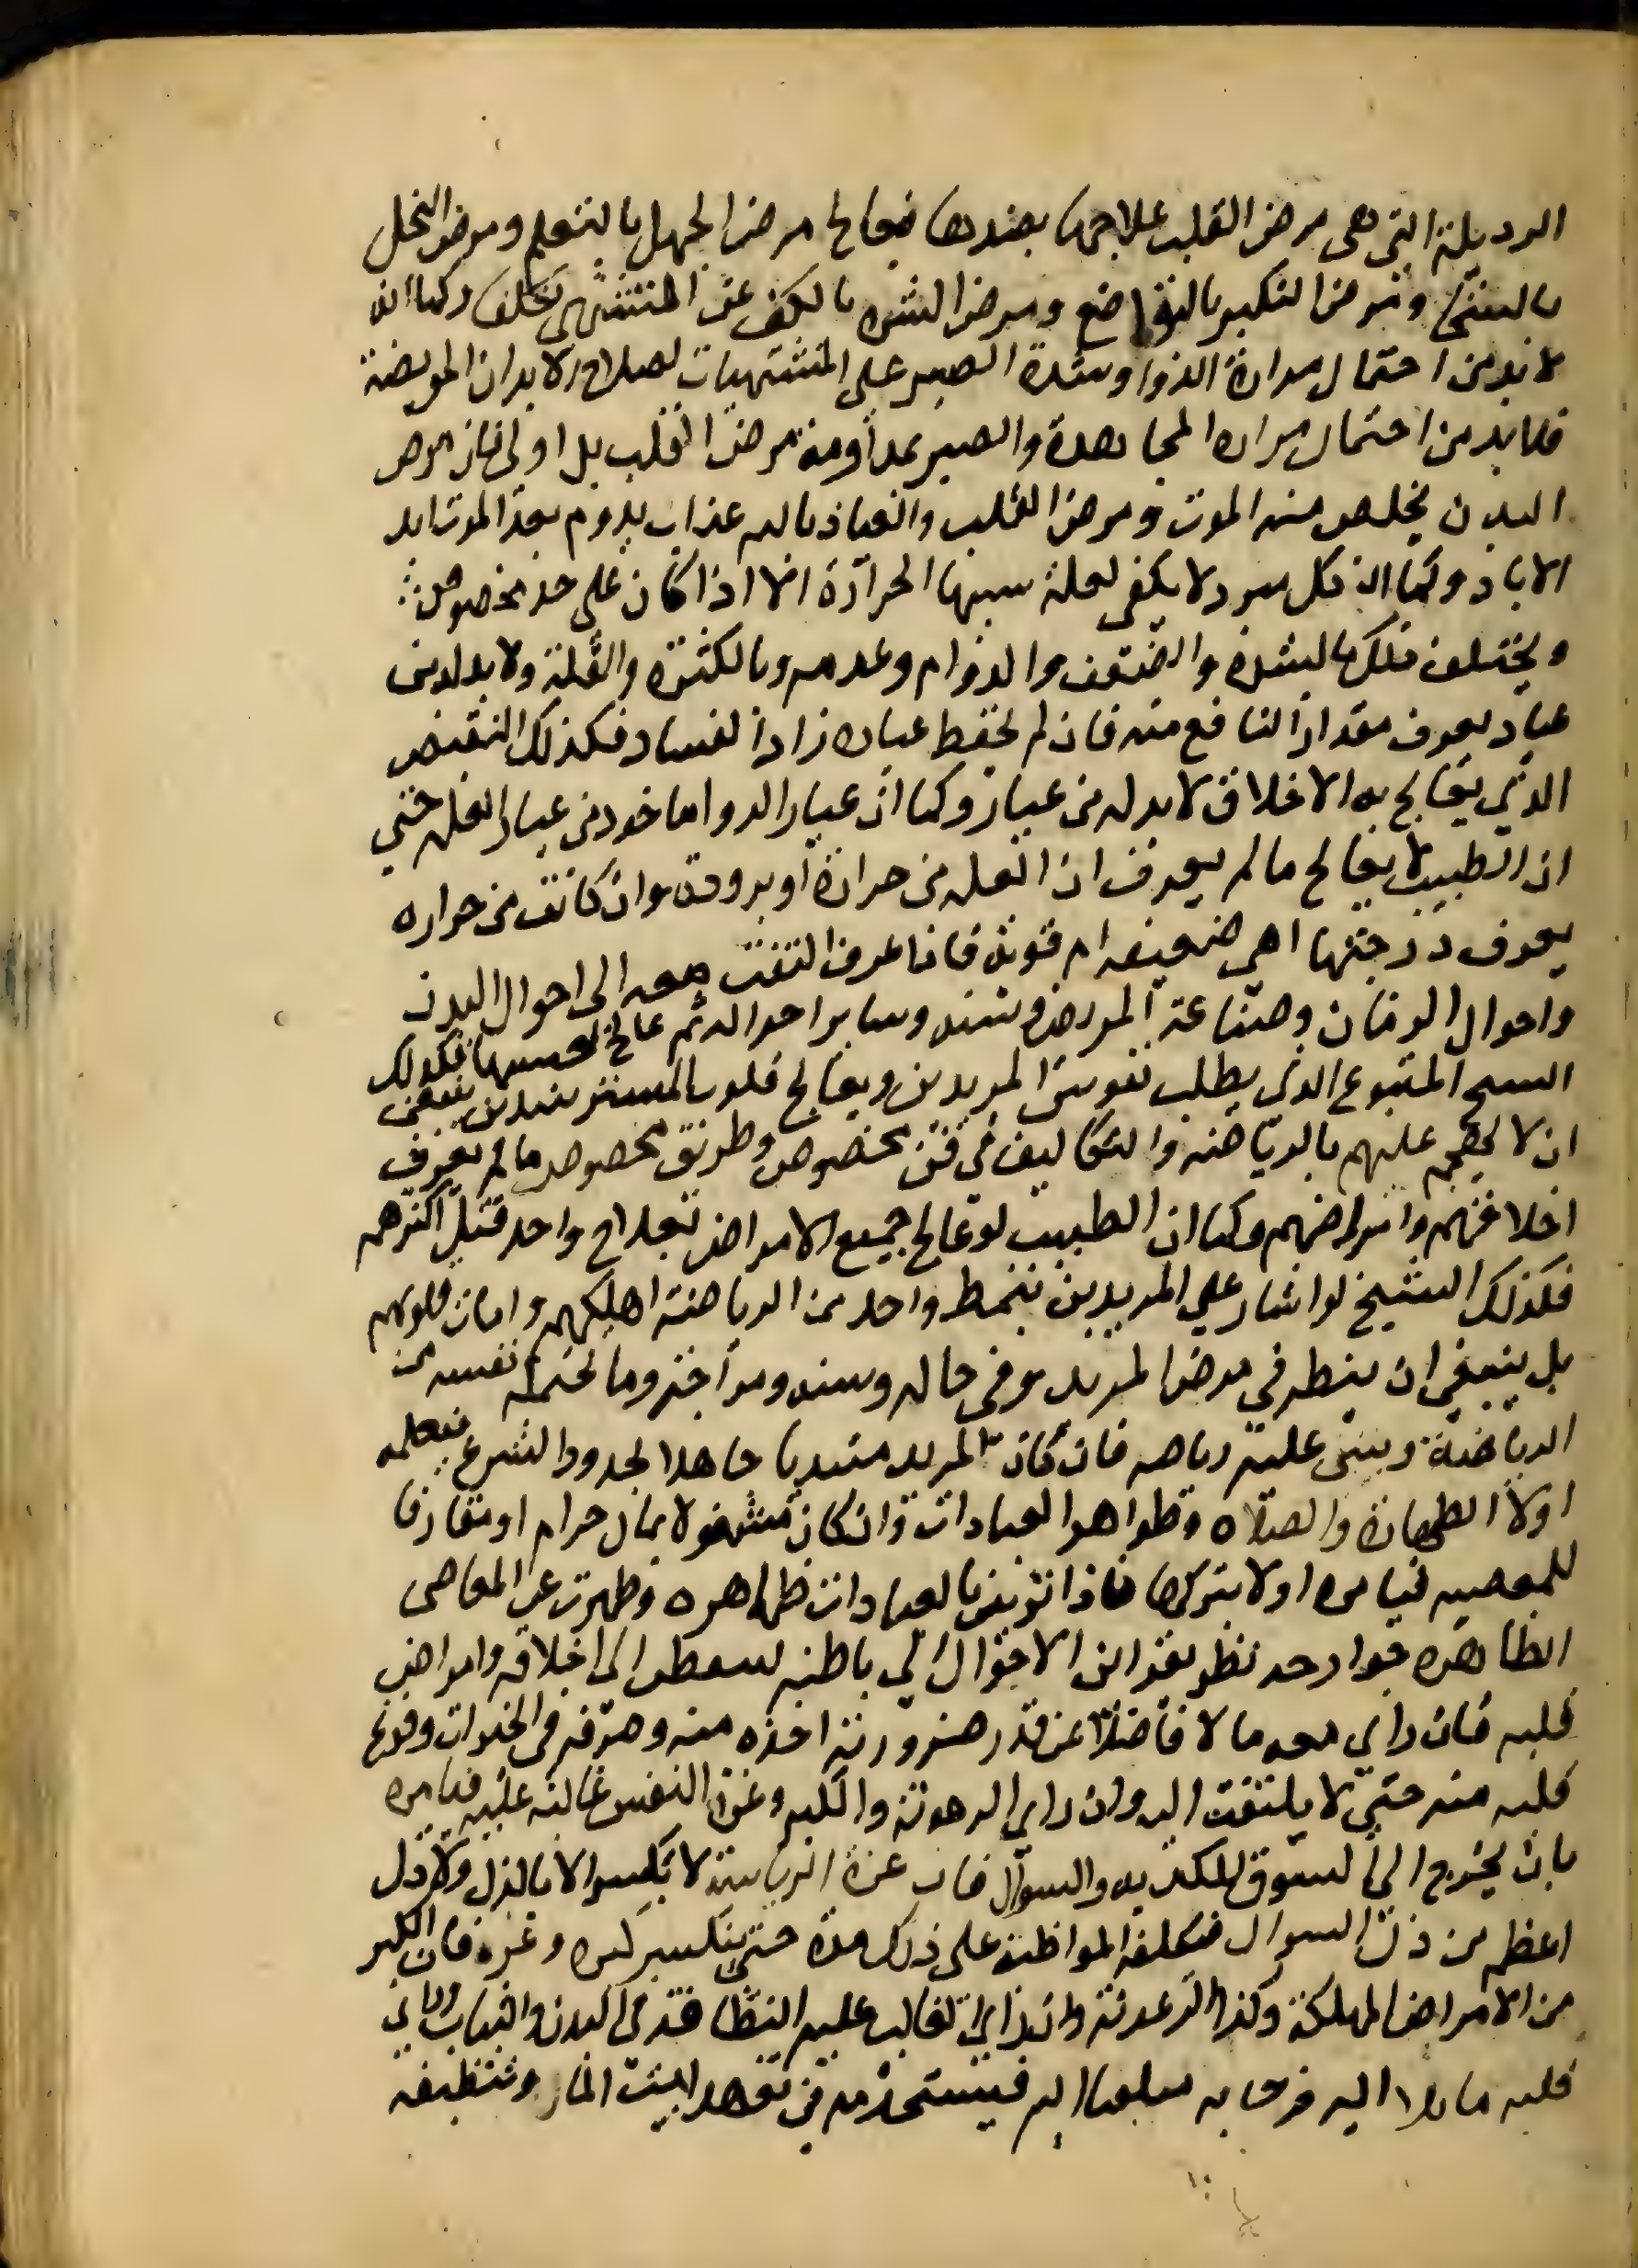 الرديلة التي هي مرض القلب علاجها بضدها فيعالج مرض الجهل بالتعلم ومرض البخل
بالسخا ومرض الكبر بالتواضع ومرض الشره بالكف عن المشتهى تكلفا وكما انه
لا بد من احتمال مرارة الدوا وشدة الصبر على المشتهيات لصلاح الابدان المريضة
فلا بد من احتمال مراره المجاهدة والصبر بمداومة مرض القلب بل اولى فان مرض
البدن يخلص منه الموت ومرض القلب والعياذ بالله عذاب يدوم بعد الموت ابد
الاباد وكما ان كل مبرد لا يكفي لعلة سببها الحرارة الا اذا كان على حد مخصوص
ويختلف ذلك بالشدة والضعف والدوام وعدمه وبالكثره والقلة ولا بد له من
عيار يعرف مقدار النافع منه فان لم يحفظ عياره زاد الفساد فكذلك النقيض
الذي يعالج به الاخلاق لا بد له من عيار وكما ان عيار الدوا ماخود من عيار العله حتي
ان الطبيب لا يعالج ما لم يعرف ان العله من حرارة او برودة وان كانت من حراره
يعرف درجتها اهي ضعيفه ام قوية فاذا عرف التفت معه الى احوال البدن
واحوال الزمان وصناعة المريض وسنه وساير احواله ثم عالج بحسبها فكذلك
الشيخ المتبوع الذي يطلب نفوس المريدين ويعالج قلوب المسترشدين ينبغي
ان لا يهجم عليهم بالرياضه والتكاليف في فن مخصوص وطريق مخصوص ما لم يعرف
اخلاقهم وامراضهم وكما ان الطبيب لو عالج جميع الامراض بعلاج واحد قتل اكثرهم
فكذلك الشيخ لو اشار علي المريدين بنمط واحد من الرياضة اهلكهم وامات قلوبهم
بل ينبغي ان ينظر في مرض المريد وفي حاله وسنه ومزاجه وما تحتمله نفسه من
الرياضة ويبني عليه رياضه فان كان المريد مبتديا جاهلا بحدود الشرع فيعلمه
اولا الطهارة والصلاه وظواهر العبادات وان كان مشغولا بمال حرام او مقارفا
للمعصيه فيامره اولا بتركها فاذا تزين بالعبادات ظاهره وطهرت عن المعاصي
الظاهره جوارحه نظر بقراين الاحوال الى باطنه ليتفطن الى اخلاقه وامراض
قلبه فان راي معه مالا فاضلا عن قدر ضرورته اخذه منه وصرفه في الخيرات وفرغ
قلبه منه حتي لا يلتفت اليه وان راي الرعونة والكبر وعزة النفس غالبة عليه فيامره
بان يخرج الى السوق للكديه والسوال فان عزة الرياسة لا تنكسر الا بالذل ولا ذل
اعظم من ذل السوال فيكلفه المواظبة على ذلك مدة حتى ينكسر كبره وعزه فان الكبر
من الامراض المهلكة وكذا الرعونة وان راي الغالب عليه النظافة في البدن والثياب وراي
قلبه مايلا اليه فرحا به ملتفتا اليه فيستخدمه في تعهد البيت الماء وتنظيفه